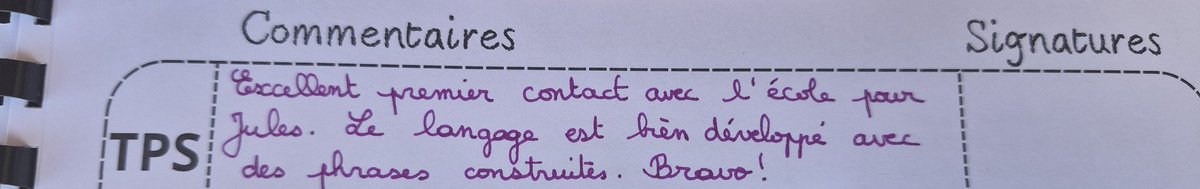 Commentaires Signatures
Excellent premier contact avec l'école pour
Jules. Le langage est bien développé avec
TPS
des phrases construites. Bravo!